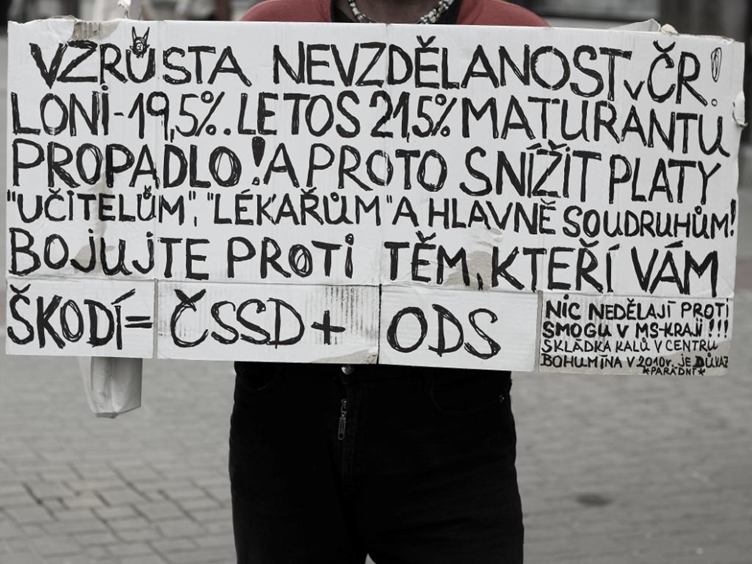 VZRŮSTA NEVZDĚLANOST v ČR!
LONI-19,5%. LETOS 21,5% MATURANTŮ
PROPADLO! A PROTO SNÍŽIT PLATY
"UČITELŮM", "LÉKAŘŮM" A HLAVNĚ SOUDRUHŮM!
BOJUJTE PROTI TĚM, KTEŘÍ VÁM
ŠKODÍ= ČSSD+ ODS
NIC NEDĚLAJÍ PROTI
SMOGU V MS-KRAJI!!!
SKLÁDKA KALŮ V CENTRU
BOHUMÍNA V 2010r. JE DŮKAZ
*PARÁDNÍ*